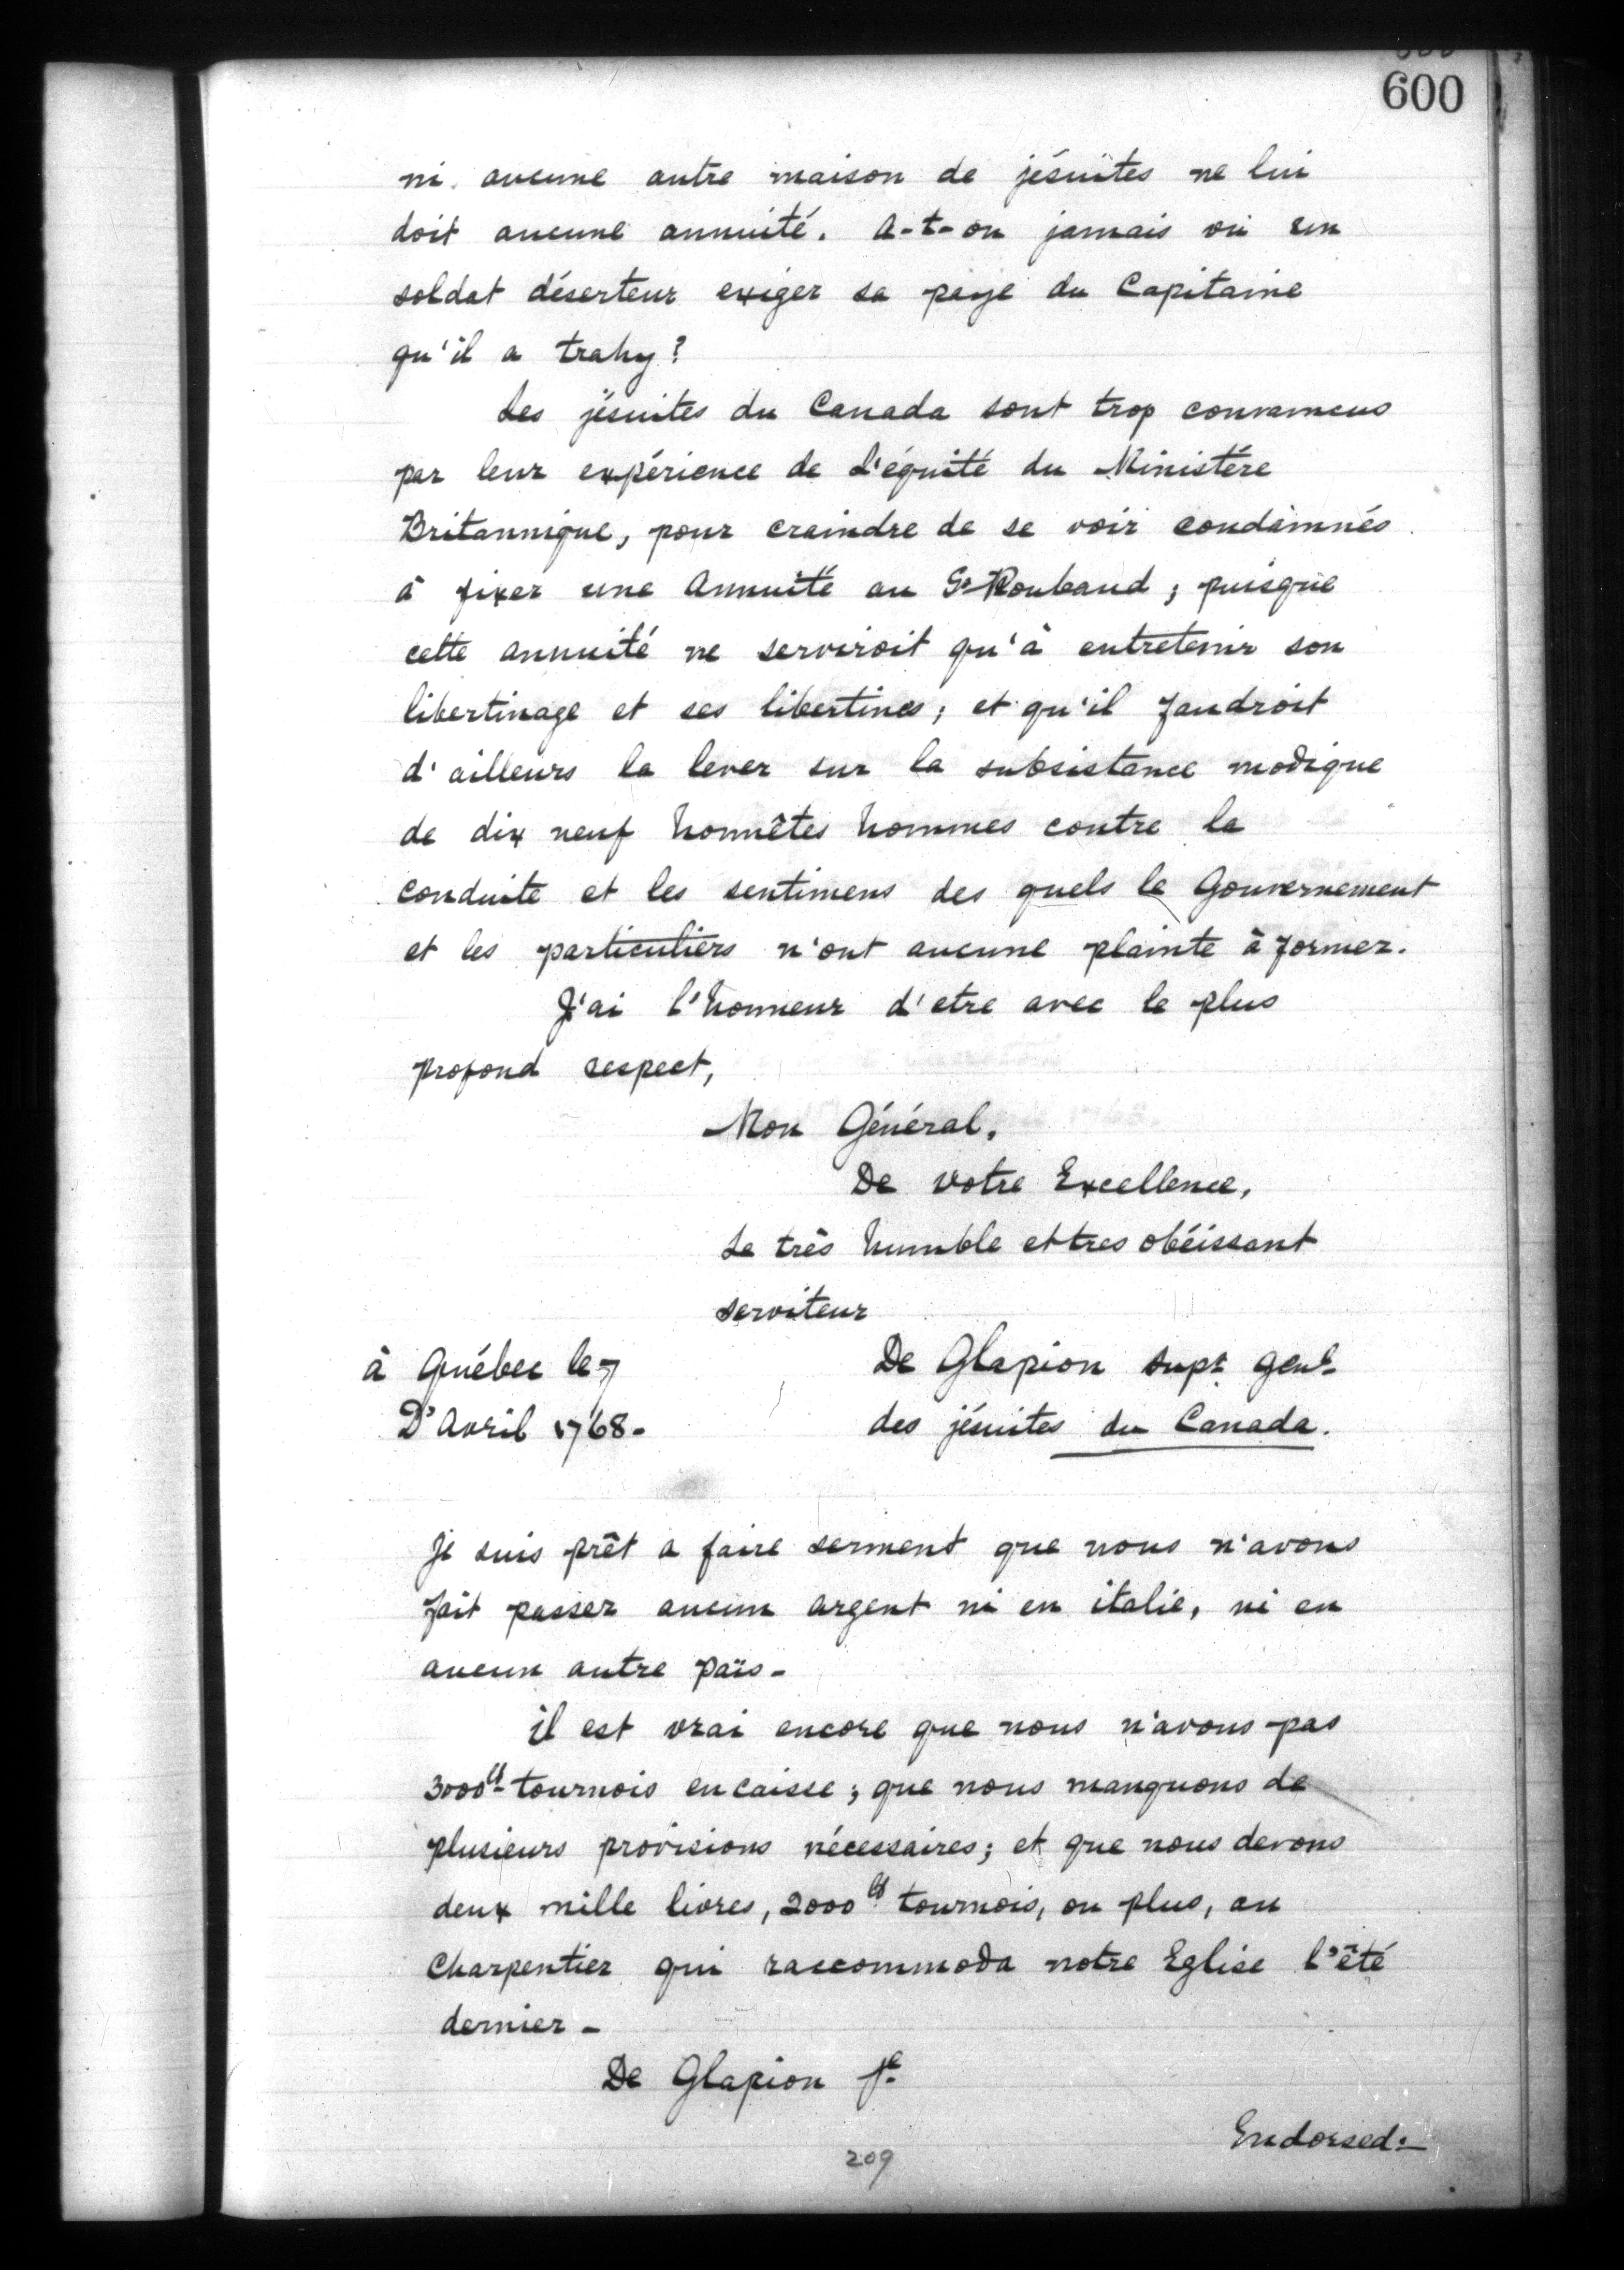 600
ni aucune autre maison de jésuites ne lui
doit aucune annuité. A-t-on jamais vû un
soldat déserteur exiger sa paye du Capitaine
qu'il a trahy?
Les jésuites du Canada sont trop convaincus
par leur expérience de L'équité du Ministére
Britannique, pour craindre de se voir condamnés
à fixer une Annuité au Sr Roubaud ; puisque
cette annuité ne serviroit qu'à entretenir son
libertinage et ses libertines ; et qu'il faudroit
d'ailleurs la lever sur la subsistance modique
de dix neuf honnêtes hommes contre la
conduite et les sentimens des quels le Gouvernement
et les particuliers n'ont aucune plainte à former.
J'ai l'honneur d'etre avec le plus
profond respect,
Mon Général,
De votre Excellence,
Le très humble et tres obéissant
serviteur
à Québec le 7 De Glapion supr genl
D'Avril 1768- des jésuites du Canada.
Je suis prêt a faire serment que nous n'avons
fait passer aucun argent ni en italie, ni en
aucun autre païs-
il est vrai encore que nous n'avons pas
3000ls tournois en caisse ; que nous manquons de
plusieurs provisions nécessaires ; et que nous devons
deux mille livres, 2000ls tournois, ou plus, au
Charpentier qui raccommoda notre Eglise l'été
dernier-
De Glapion
Endorsed:-
209